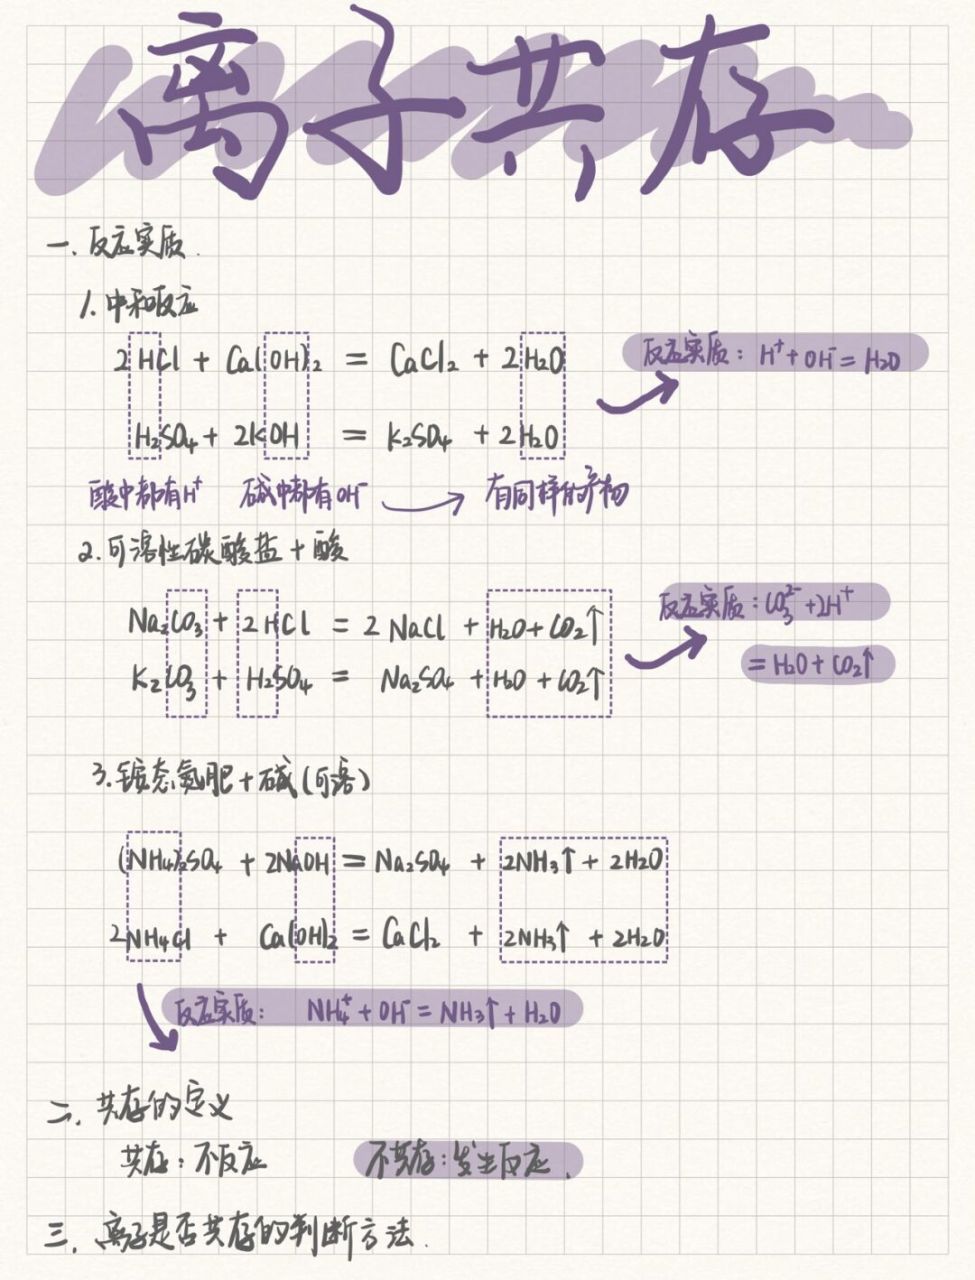 离子共存
一. 反应实质.
1. 中和反应
2HCl + Ca(OH)₂ = CaCl₂ + 2H₂O
反应实质: H⁺+OH⁻=H₂O
H₂SO₄ + 2KOH = K₂SO₄ + 2H₂O
酸中都有H⁺ 碱中都有OH⁻ → 有同样的产物
2. 可溶性碳酸盐 + 酸
Na₂CO₃ + 2HCl = 2NaCl + H₂O+CO₂↑
反应实质: CO₃²⁻+2H⁺
=H₂O+CO₂↑
K₂CO₃ + H₂SO₄ = Na₂SO₄ + H₂O + CO₂↑
3. 铵态氮肥+碱(可溶)
(NH₄)₂SO₄ + 2NaOH = Na₂SO₄ + 2NH₃↑ + 2H₂O
2NH₄Cl + Ca(OH)₂ = CaCl₂ + 2NH₃↑ + 2H₂O
反应实质: NH₄⁺+OH⁻=NH₃↑+H₂O
二. 共存的定义
共存: 不反应 不共存: 发生反应.
三. 离子是否共存的判断方法.